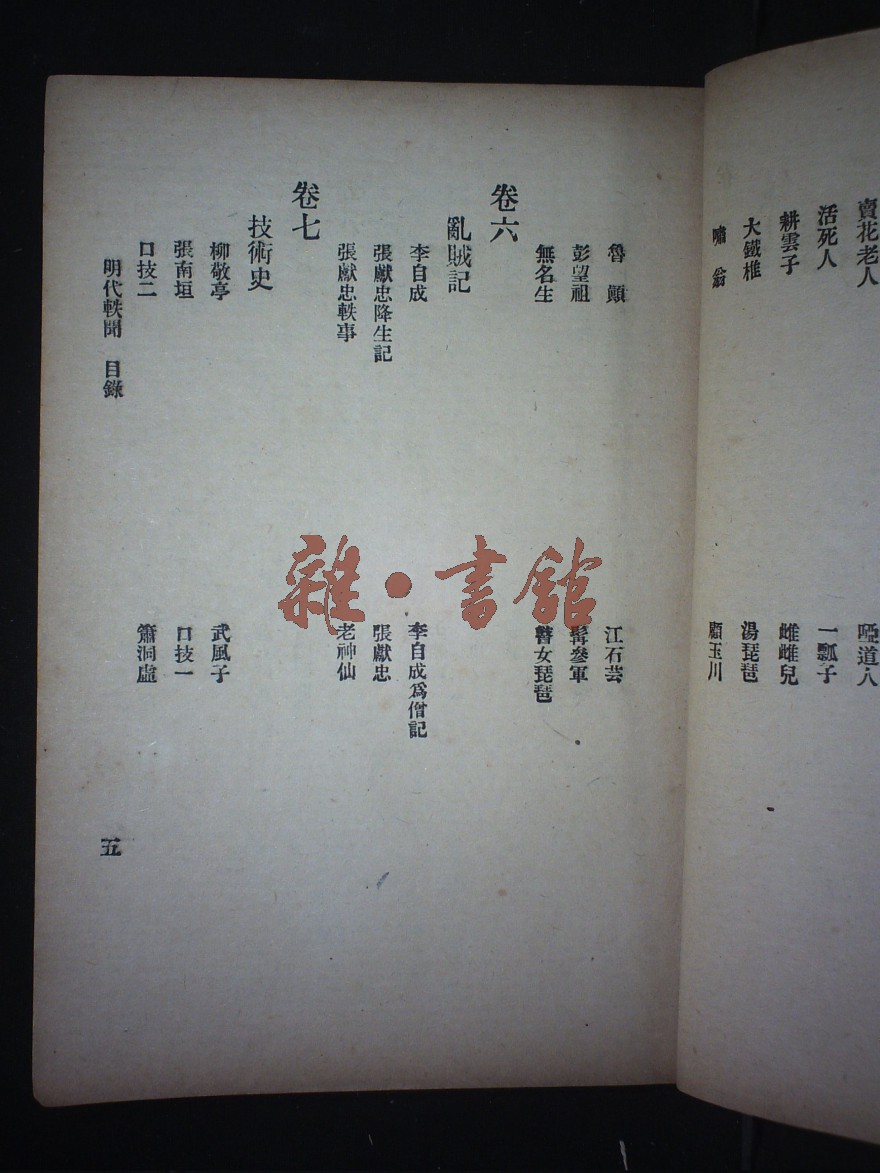 賣花老人
啞道人
活死人
一瓢子
耕雲子
雌雌兒
大鐵椎
湯琵琶
嘯翁
顧玉川
魯顛
江石芸
彭望祖
髯參軍
無名生
瞽女琵琶
卷六
亂賊記
李自成
李自成爲僧記
張獻忠降生記
張獻忠
張獻忠軼事
老神仙
卷七
技術史
柳敬亭
武風子
張南垣
口技一
口技二
簫洞虛
明代軼聞 目錄
五
雜·書館